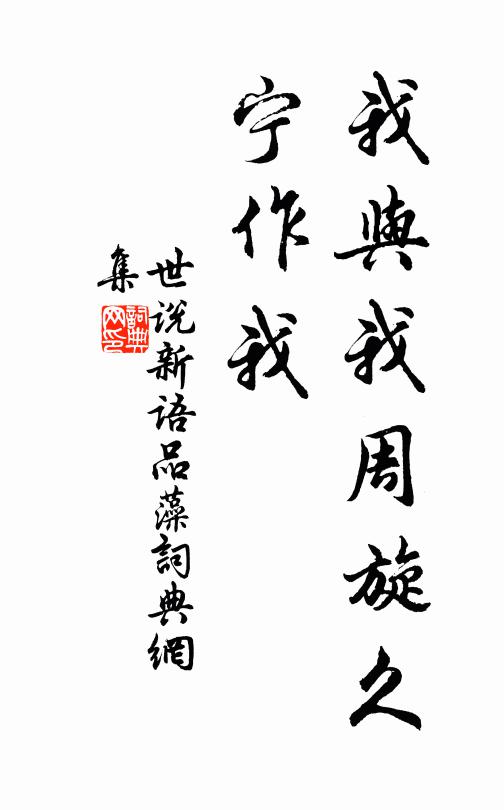 我與我周旋久
宁作我
世说新语品藻詞典網
集
詞典
网印